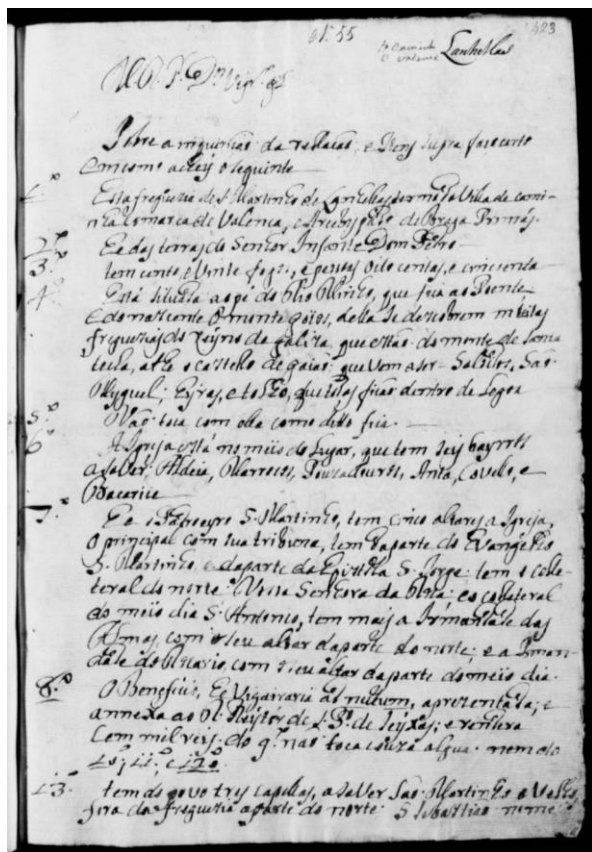 Lanhellas
423
Sobre a
e Reys supra faço certo
o seguinte
Esta freguezia de S. Martinho de Lanhellas termo da Villa de cami-
nha comarca de Valença, e Arcebyspado de Braga Primás.
2º
He das terras do Senhor Infante Dom Pedro
3º
tem cento, e vinte fogos, e pessoas oito centas, e cincoenta
4º
Está situada ao pé do Rio Minho, que fica ao Poente
e do nascente o monte goios, della se descobrem muitas
freguezias do reyno de galiza, que estão do monte de Santa
tecla, athe o castello de gaiás que vem a ser Salsidos, São
Miguel, Eyras, e que todas ficão dentro de legoa
5º
Não toca com ella como dito fica.
6º
A Igreja está no meio do lugar, que tem seis bayrros
a saber, Aldeia, Marrocos, Pouzadouros, Anta, Covello, e
Bacarice
7º
He o Padroeyro S. Martinho, tem cinco altares a Igreja,
O principal com sua tribuna, tem da parte do Evangelho
S. Martinho, e da parte da Epistola S. Jorge: tem o cola-
teral do norte Nossa Senhora da e o colateral
do meio dia S. Antonio, tem mais a Irmandade das
Almas, com o seu altar da parte do norte; e a Irman-
dade do Rosario, com o seu altar da parte do meio dia.
8º
O Beneficio, He Vigairaria ad nutum, aprezentada, e
annexa ao R. Reytor de de Seyxas; e rendera
cem mil reis. do q. não toca couza algũa. nem do
10, 11, e 12º
13º
tem do povo tres capellas, a saber São Martinho o Velho,
fora da freguezia a parte do norte. S. Sebastião no me